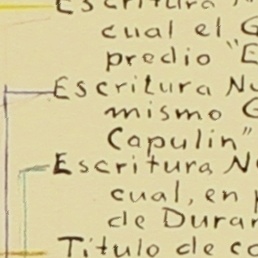 Escritura N
cual el G
predio "E
Escritura Nu
mismo G
Capulin"
Escritura Nu
cual, en p
de Duran
Titulo de co